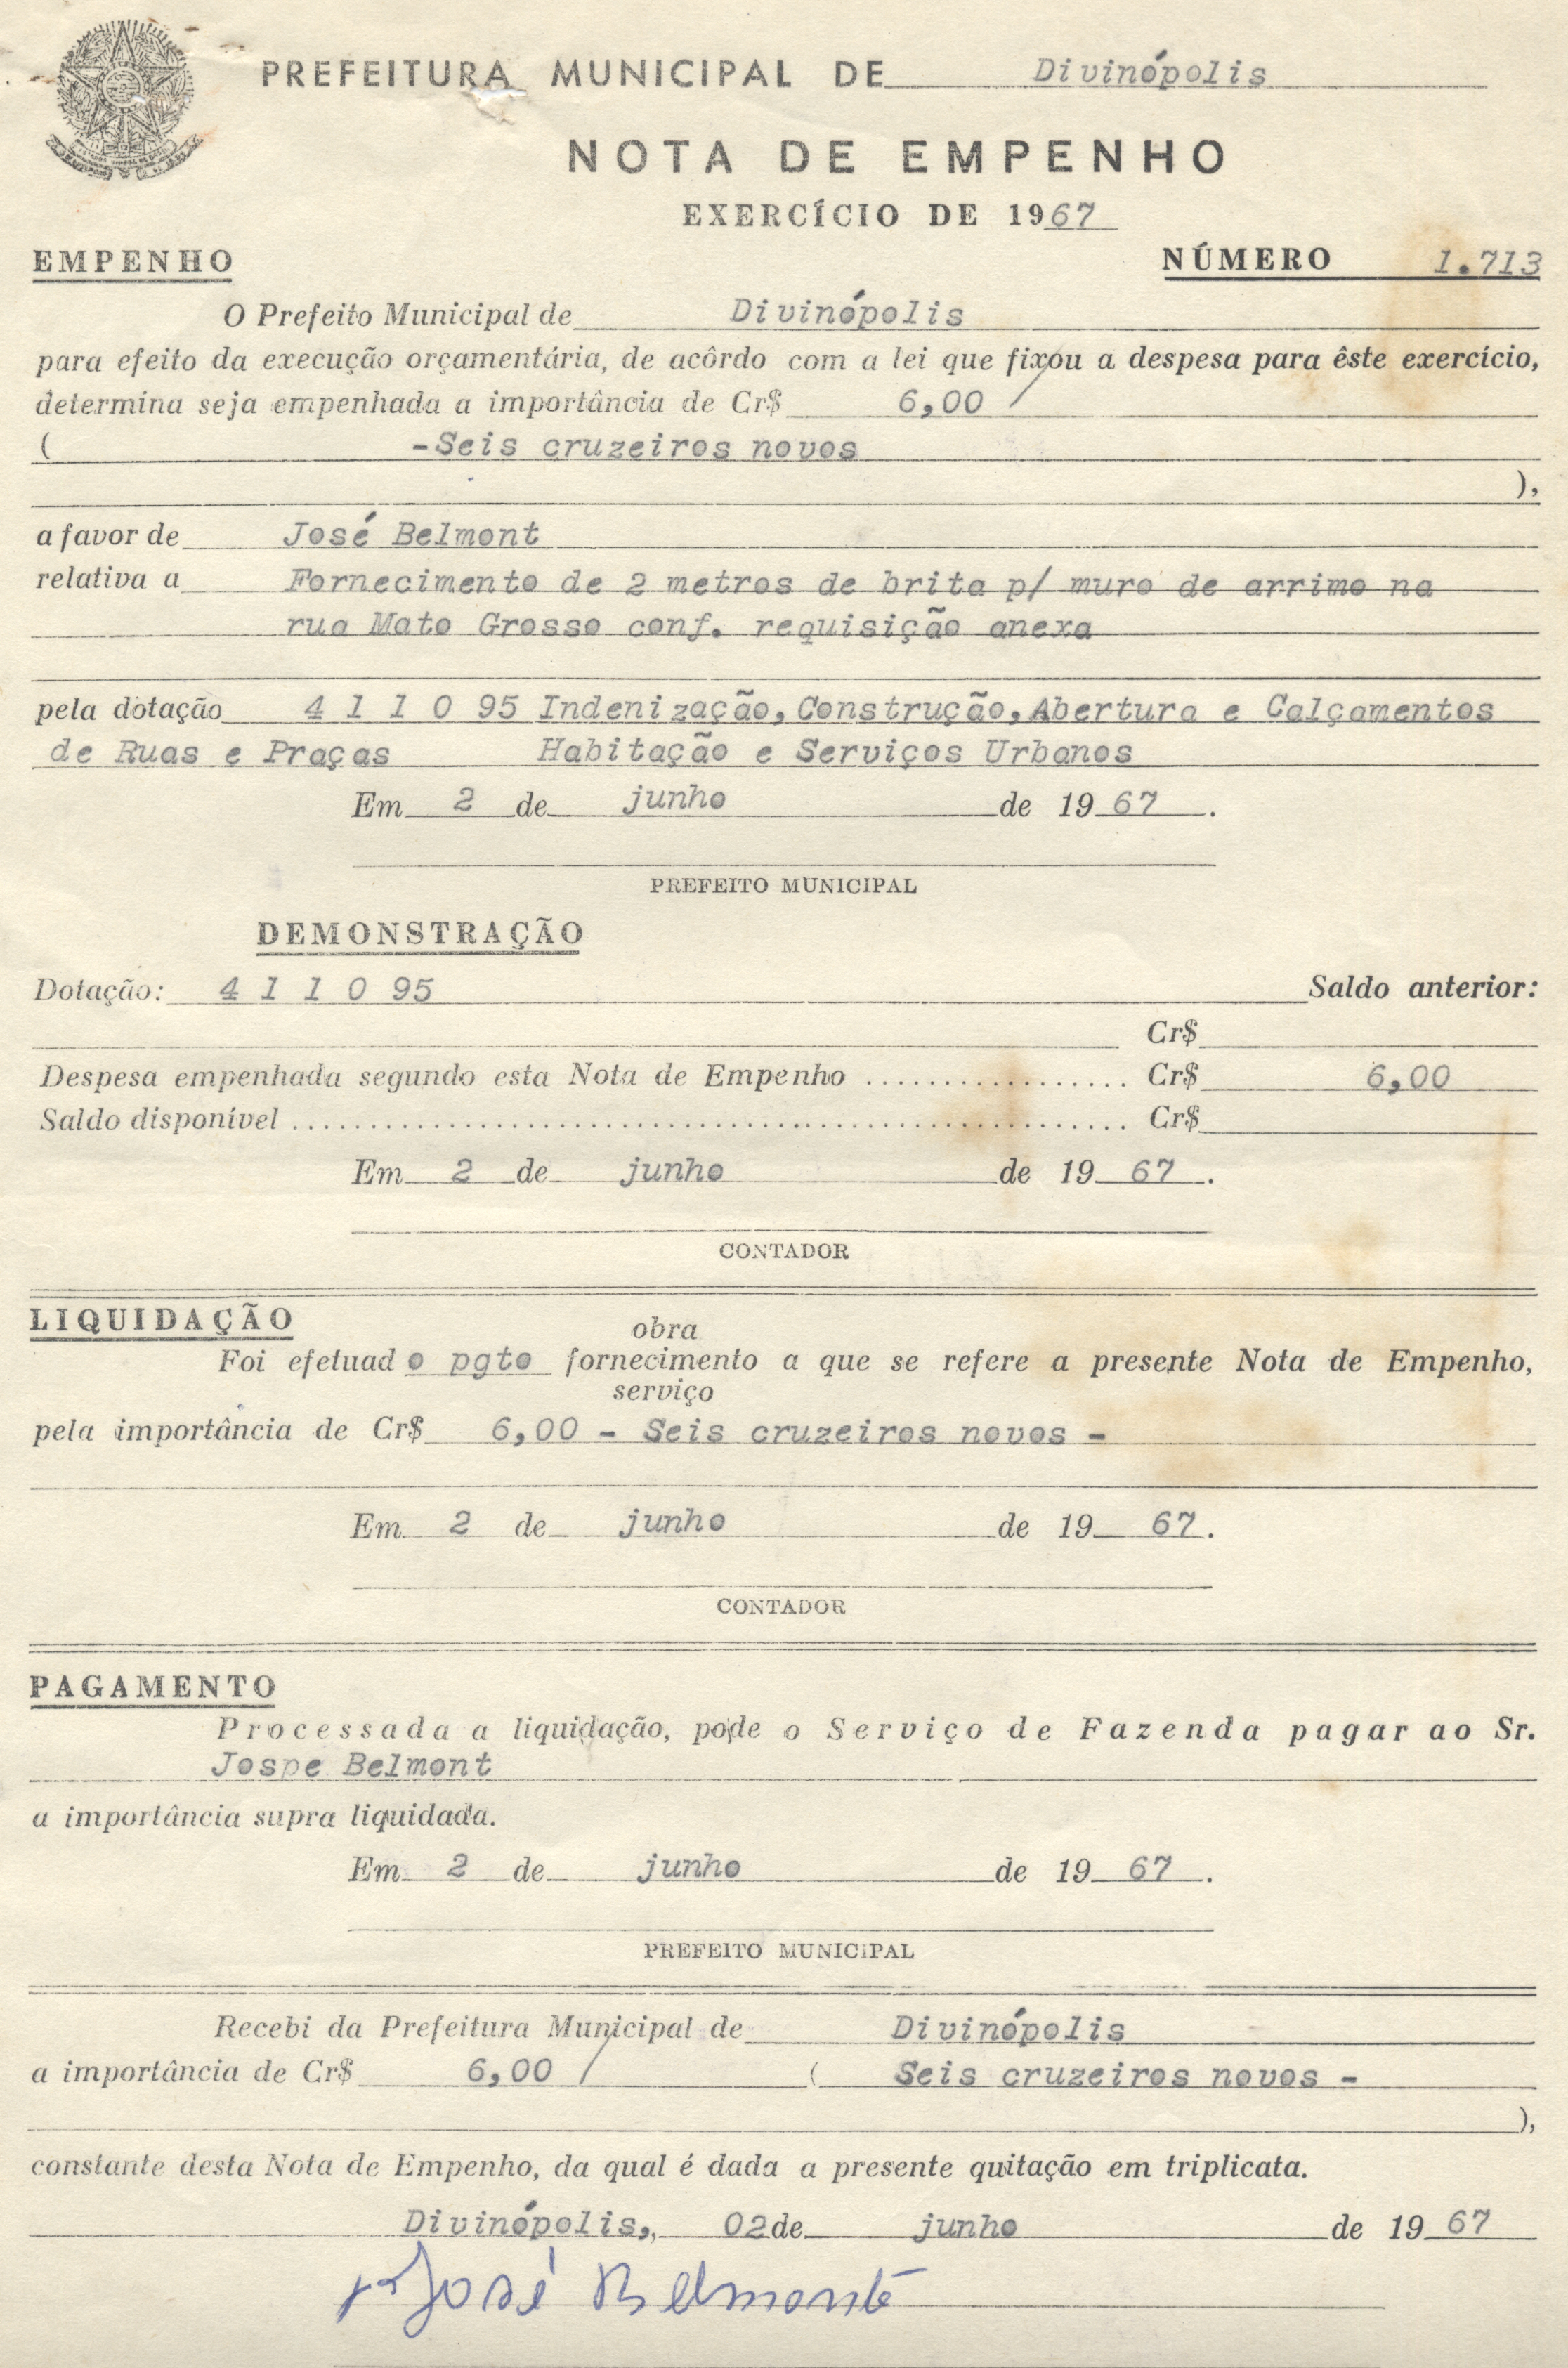 PREFEITURA MUNICIPAL DE Divinópolis
NOTA DE EMPENHO
EXERCÍCIO DE 1967
EMPENHO NÚMERO 1.713
O Prefeito Municipal de Divinópolis
para efeito da execução orçamentária, de acôrdo com a lei que fixou a despesa para êste exercício,
determina seja empenhada a importância de Cr$ 6,00 /
( -Seis cruzeiros novos
),
a favor de José Belmont
relativa a Fornecimento de 2 metros de brita p/ muro de arrimo na
rua Mato Grosso conf. requisição anexa
pela dotação 4 1 1 0 95 Indenização, Construção, Abertura e Calçamentos
de Ruas e Praças Habitação e Serviços Urbanos
Em 2 de junho de 1967.
PREFEITO MUNICIPAL
DEMONSTRAÇÃO
Dotação: 4 1 1 0 95 Saldo anterior:
Cr$
Despesa empenhada segundo esta Nota de Empenho ................. Cr$ 6,00
Saldo disponível ...................................................... Cr$
Em 2 de junho de 1967.
CONTADOR
LIQUIDAÇÃO
obra
Foi efetuado pgto fornecimento a que se refere a presente Nota de Empenho,
serviço
pela importância de Cr$ 6,00 - Seis cruzeiros novos -
Em 2 de junho de 1967.
CONTADOR
PAGAMENTO
Processada a liquidação, pode o Serviço de Fazenda pagar ao Sr.
Jospe Belmont
a importância supra liquidada.
Em 2 de junho de 1967.
PREFEITO MUNICIPAL
Recebi da Prefeitura Municipal de Divinópolis
a importância de Cr$ 6,00 / ( Seis cruzeiros novos -
),
constante desta Nota de Empenho, da qual é dada a presente quitação em triplicata.
Divinópolis,, 02 de junho de 1967
José Belmonte